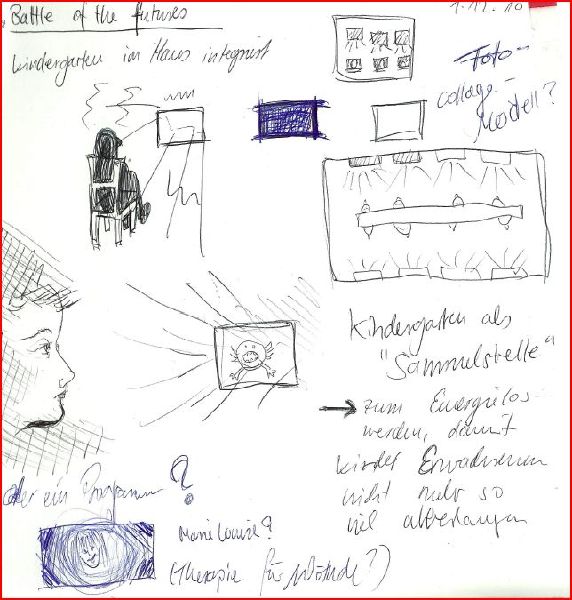 Battle of the futures
1.11.10
Kindergarten im Haus integriert
Foto-
collage-
Modell?
Kindergarten als
"Sammelstelle"
→ zum Energielos
werden, damit
Kinder Erwachsenen
nicht mehr so
viel abverlangen
oder ein Programm?
Marie Louise?
(Therapie für